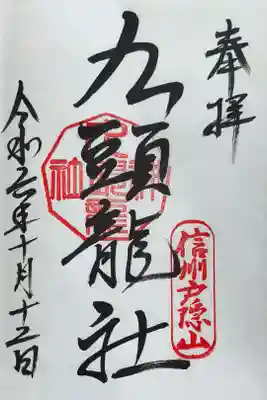 奉拝
九頭龍社
信州戸隠山
令和六年十月十二日